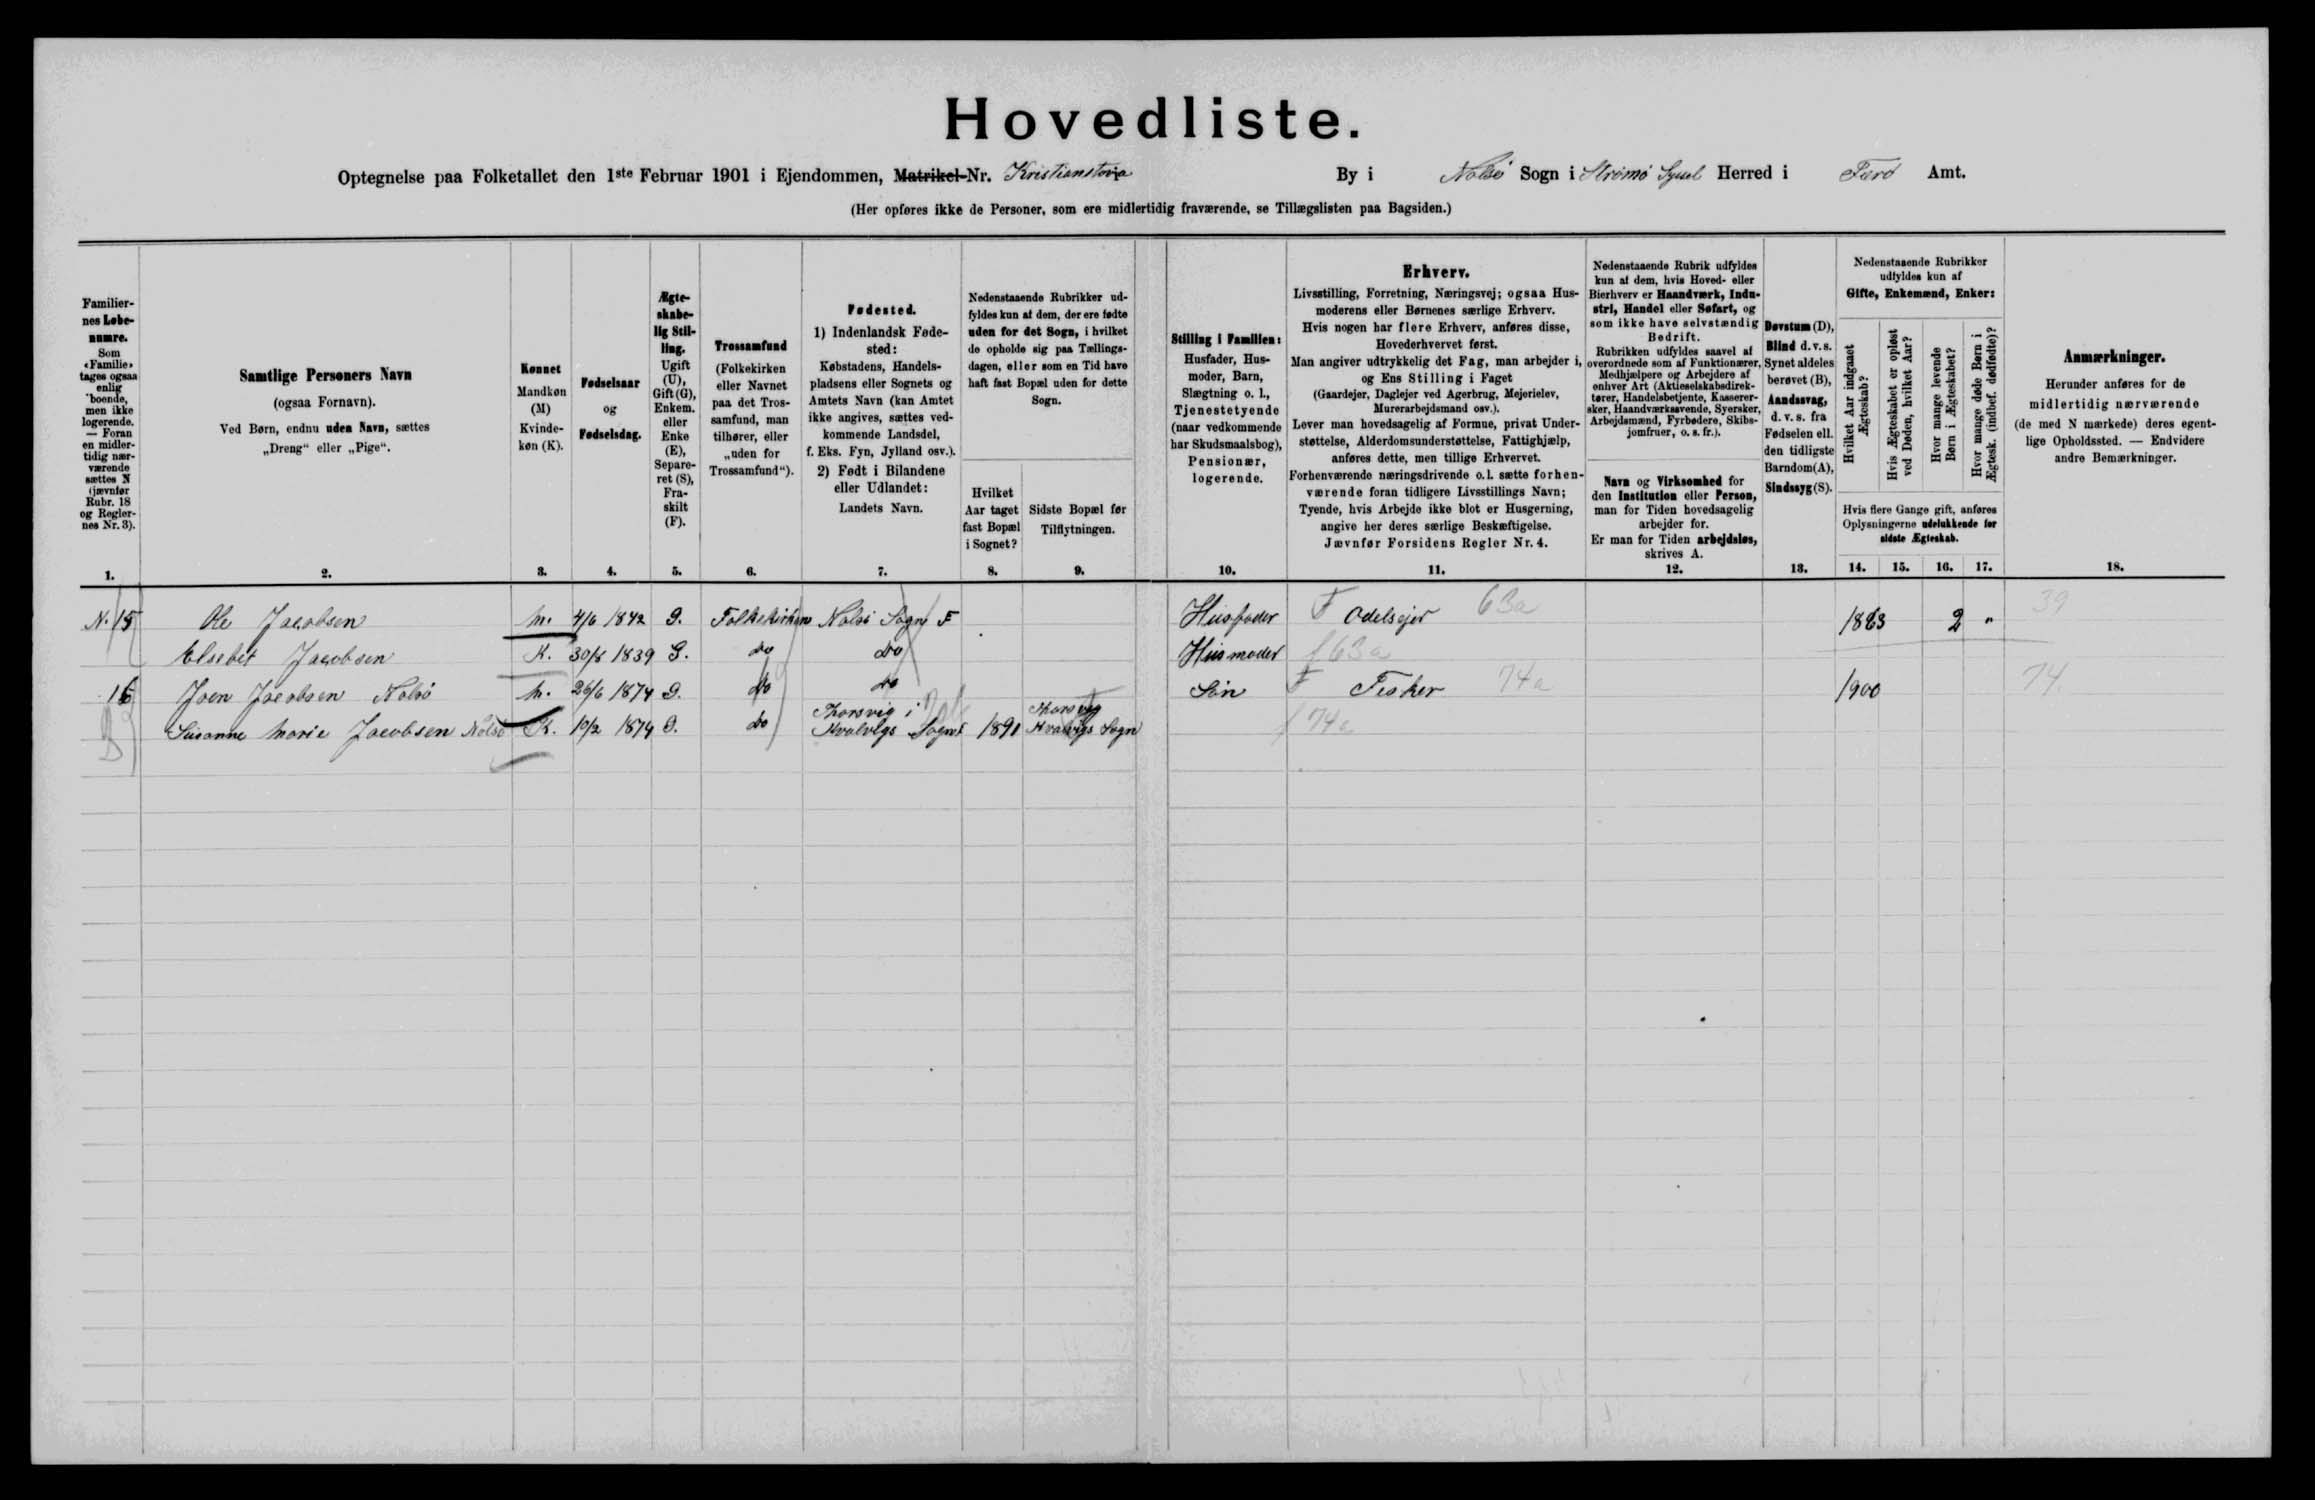 Hovedliste.
Optegnelse paa Folketallet den 1ste Februar 1901 i Ejendommen, Matrikel-Nr. Kristianstova By i Nolsö Sogn i Strömö Syssel Herred i Færö Amt.
(Her opføres ikke de Personer, som ere midlertidig fraværende, se Tillægslisten paa Bagsiden.)
Familier-
nes Løbe-
numre.
Som
«Familie»
tages ogsaa
enlig
boende,
men ikke
logerende.
— Foran
en midler-
tidig nær-
værende
sættes N
(jævnfør
Rubr. 18
og Regler-
nes Nr. 3).
1.
Samtlige Personers Navn
(ogsaa Fornavn).
Ved Børn, endnu uden Navn, sættes
„Dreng“ eller „Pige“.
2.
Kønnet
Mandkøn
(M)
Kvinde-
køn (K).
3.
Fødselsaar
og
Fødselsdag.
4.
Ægte-
skabe-
lig Stil-
ling.
Ugift
(U),
Gift (G),
Enkem.
eller
Enke
(E),
Separe-
ret (S),
Fra-
skilt
(F).
5.
Trossamfund
(Folkekirken
eller Navnet
paa det Tros-
samfund, man
tilhører, eller
„uden for
Trossamfund“).
6.
Fødested.
1) Indenlandsk Føde-
sted:
Købstadens, Handels-
pladsens eller Sognets og
Amtets Navn (kan Amtet
ikke angives, sættes ved-
kommende Landsdel,
f. Eks. Fyn, Jylland osv.).
2) Født i Bilandene
eller Udlandet:
Landets Navn.
7.
Nedenstaaende Rubrikker ud-
fyldes kun af dem, der ere fødte
uden for det Sogn, i hvilket
de opholde sig paa Tællings-
dagen, eller som en Tid have
haft fast Bopæl uden for dette
Sogn.
Hvilket
Aar taget
fast Bopæl
i Sognet?
8.
Sidste Bopæl før
Tilflytningen.
9.
Stilling i Familien:
Husfader, Hus-
moder, Barn,
Slægtning o. l.,
Tjenestetyende
(naar vedkommende
har Skudsmaalsbog),
Pensionær,
logerende.
10.
Erhverv.
Livsstilling, Forretning, Næringsvej; ogsaa Hus-
moderens eller Børnenes særlige Erhverv.
Hvis nogen har flere Erhverv, anføres disse,
Hovederhvervet først.
Man angiver udtrykkelig det Fag, man arbejder i,
og Ens Stilling i Faget
(Gaardejer, Daglejer ved Agerbrug, Mejerielev,
Murerarbejdsmand osv.).
Lever man hovedsagelig af Formue, privat Under-
støttelse, Alderdomsunderstøttelse, Fattighjælp,
anføres dette, men tillige Erhvervet.
Forhenværende næringsdrivende o.l. sætte forhen-
værende foran tidligere Livsstillings Navn;
Tyende, hvis Arbejde ikke blot er Husgerning,
angive her deres særlige Beskæftigelse.
Jævnfør Forsidens Regler Nr. 4.
11.
Nedenstaaende Rubrik udfyldes
kun af dem, hvis Hoved- eller
Bierhverv er Haandværk, Indu-
stri, Handel eller Søfart, og
som ikke have selvstændig
Bedrift.
Rubrikken udfyldes saavel af
overordnede som af Funktionærer,
Medhjælpere og Arbejdere af
enhver Art (Aktieselskabsdirek-
tører, Handelsbetjente, Kasserer-
sker, Haandværkssvende, Syersker,
Arbejdsmænd, Fyrbødere, Skibs-
jomfruer, o. s. fr.).
Navn og Virksomhed for
den Institution eller Person,
man for Tiden hovedsagelig
arbejder for.
Er man for Tiden arbejdsløs,
skrives A.
12.
Døvstum (D),
Blind d. v. s.
Synet aldeles
berøvet (B),
Aandssvag,
d. v. s. fra
Fødselen ell.
den tidligste
Barndom(A),
Sindssyg (S).
13.
Nedenstaaende Rubrikker
udfyldes kun af
Gifte, Enkemænd, Enker:
Hvilket Aar indgaaet
Ægteskab?
Hvis Ægteskabet er opløst
ved Døden, hvilket Aar?
Hvor mange levende
Børn i Ægteskabet?
Hvor mange døde Børn i
Ægtesk. (indbef. dødfødte)?
Hvis flere Gange gift, anføres
Oplysningerne udelukkende for
sidste Ægteskab.
14. 15. 16. 17.
Anmærkninger.
Herunder anføres for de
midlertidig nærværende
(de med N mærkede) deres egent-
lige Opholdssted. — Endvidere
andre Bemærkninger.
18.
N. 15 Ole Jacobsen M. 4/6 1842 G. Folkekirken Nolsö Sogn F Husfader F Odelsejer 63a 1863 2 " 39
Elsebet Jacobsen K. 30/8 1839 G. do do Husmoder f 63a
16 Joen Jacobsen Nolsö M. 26/6 1874 G. do do Sön F Fisker 74a 1900 74.
Susanne Marie Jacobsen Nolsö K. 10/2 1874 G. do Thorsvig i Kvalvigs Sogn 1891 Thorsvig Kvalvigs Sogn f 74a